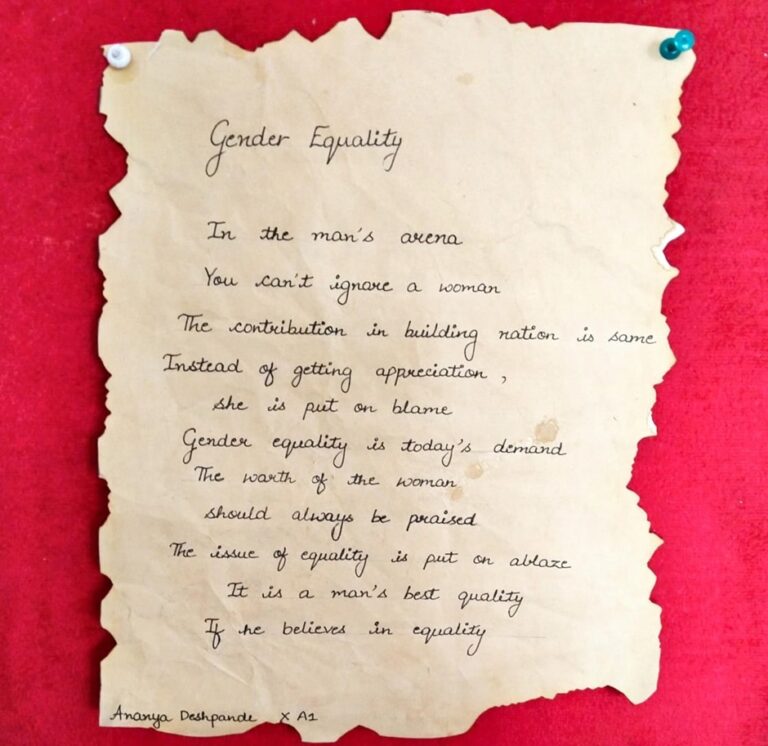 Gender Equality
In the man's arena
You can't ignore a woman
The contribution in building nation is same
Instead of getting appreciation,
she is put on blame
Gender equality is today's demand
The worth of the woman
should always be praised
The issue of equality is put on ablaze
It is a man's best quality
If he believes in equality
Ananya Deshpande X A1